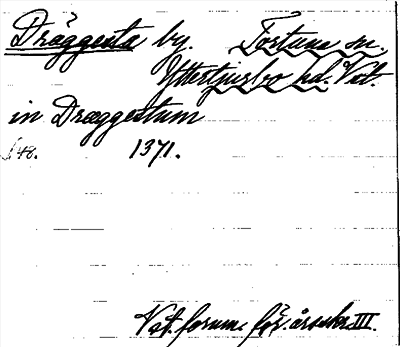 Dräggesta by. Tortuna sn.
Yttertjurbo hd. Vst.
in Dræggestum
s. 48. 1371.
Vst. fornm. för. årsskr. III.